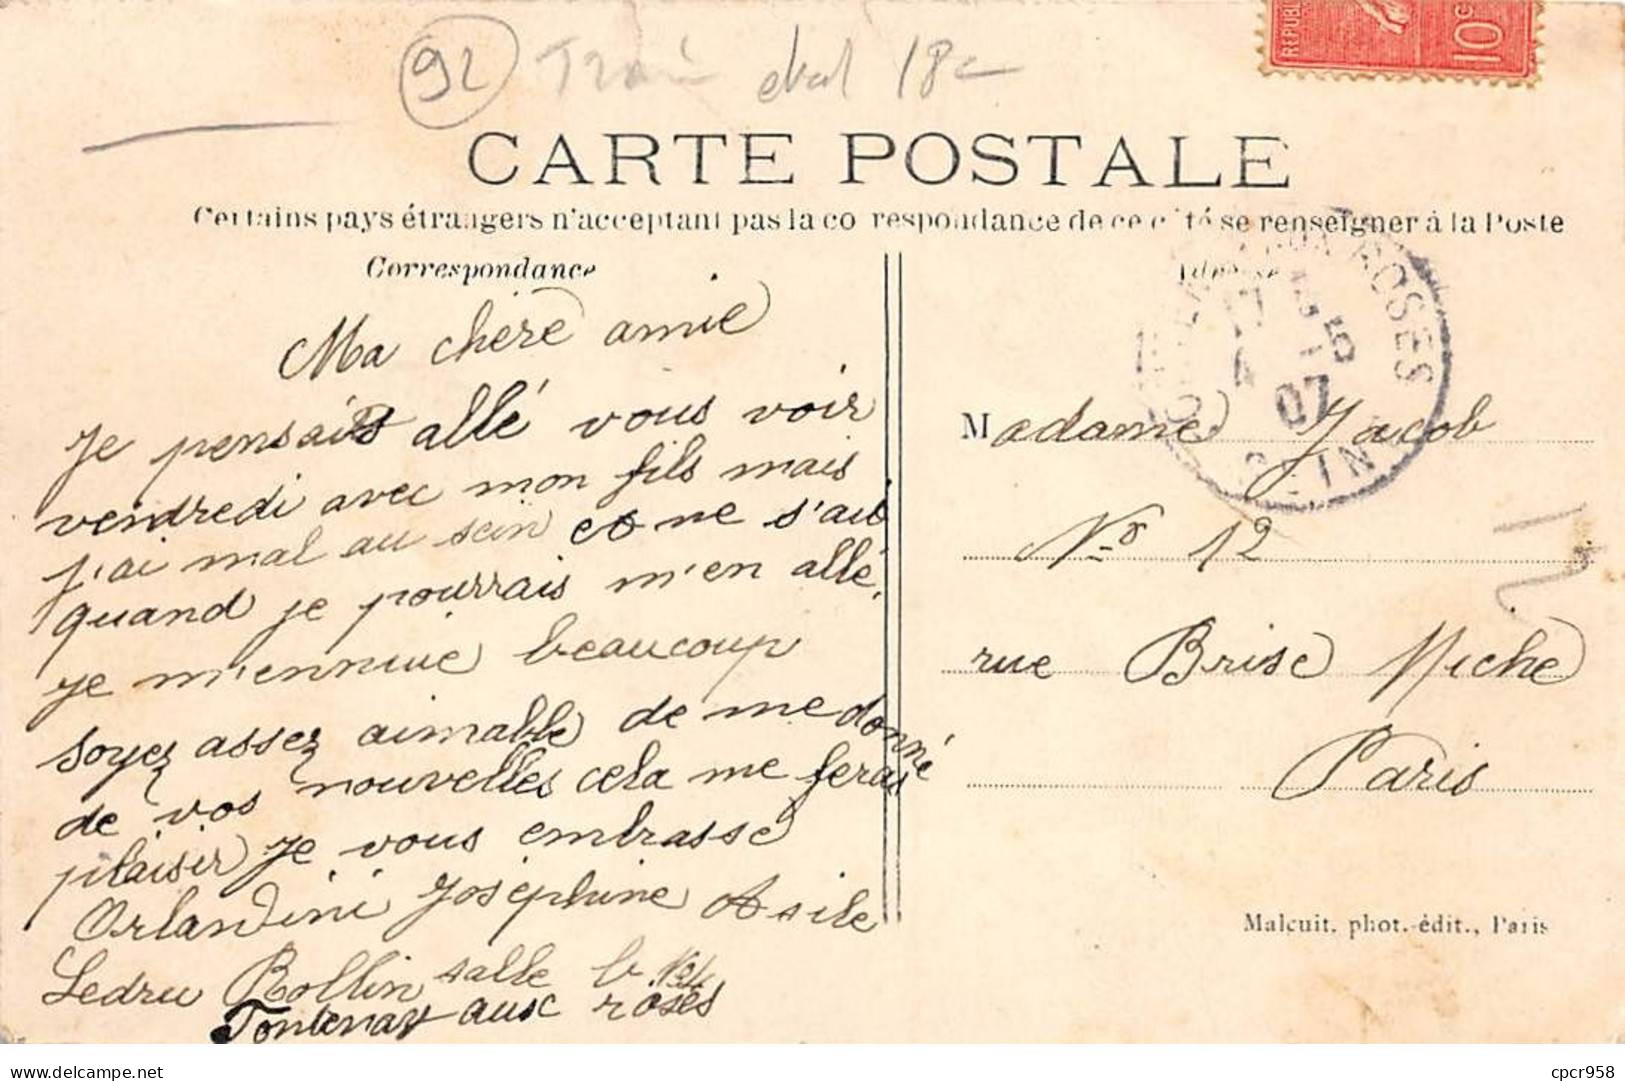 92
18
REPUBL
10c
CARTE POSTALE
Certains pays étrangers n'acceptant pas la correspondance de ce côté se renseigner à la Poste
Correspondance
Adresse
Ma chère amie
Je pensais allé vous voir
vendredi avec mon fils mais
j'ai mal au sein et ne s'ais
quand je pourrais m'en allé,
Je m'ennuie beaucoup
soyez assez aimable de me donné
de vos nouvelles cela me feras
plaisir Je vous embrasse
Orlandini Joséphine Asile
Ledru Rollin salle b
Fontenay aux roses
ROSES
SEINE
07
Madame Jacob
No 12
rue Brise Miche
Paris
Malcuit, phot.-édit., Paris
cpcr958